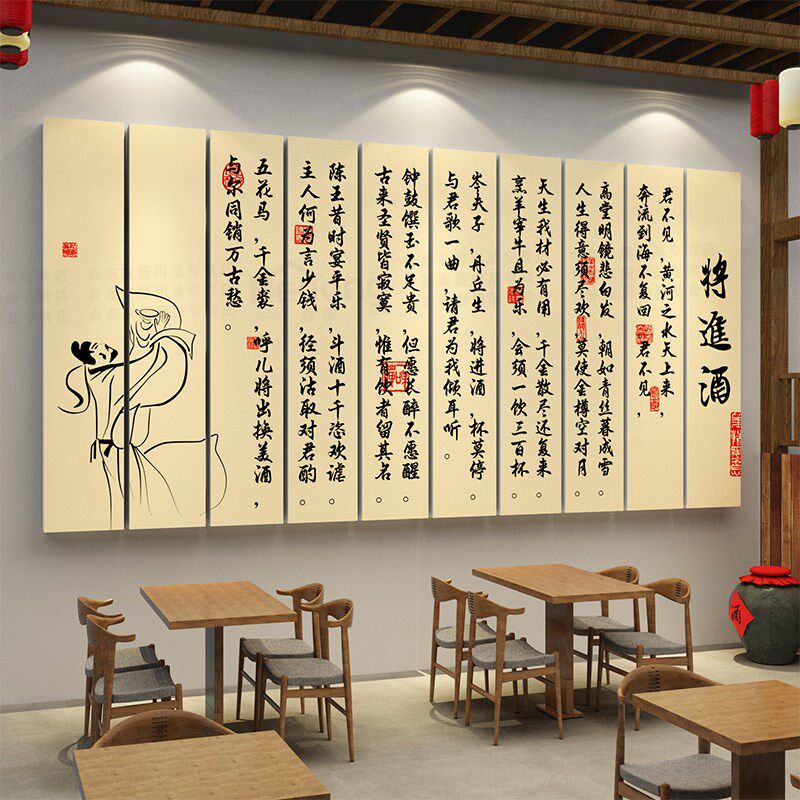 將進酒
君不见，黄河之水天上来，
奔流到海不复回。君不见，
高堂明镜悲白发，朝如青丝暮成雪。
人生得意须尽欢，莫使金樽空对月。
天生我材必有用，千金散尽还复来。
烹羊宰牛且为乐，会须一饮三百杯。
岑夫子，丹丘生，将进酒，杯莫停。
与君歌一曲，请君为我倾耳听。
钟鼓馔玉不足贵，但愿长醉不愿醒。
古来圣贤皆寂寞，惟有饮者留其名。
陈王昔时宴平乐，斗酒十千恣欢谑。
主人何为言少钱，径须沽取对君酌。
五花马，千金裘，呼儿将出换美酒，
与尔同销万古愁。
酒